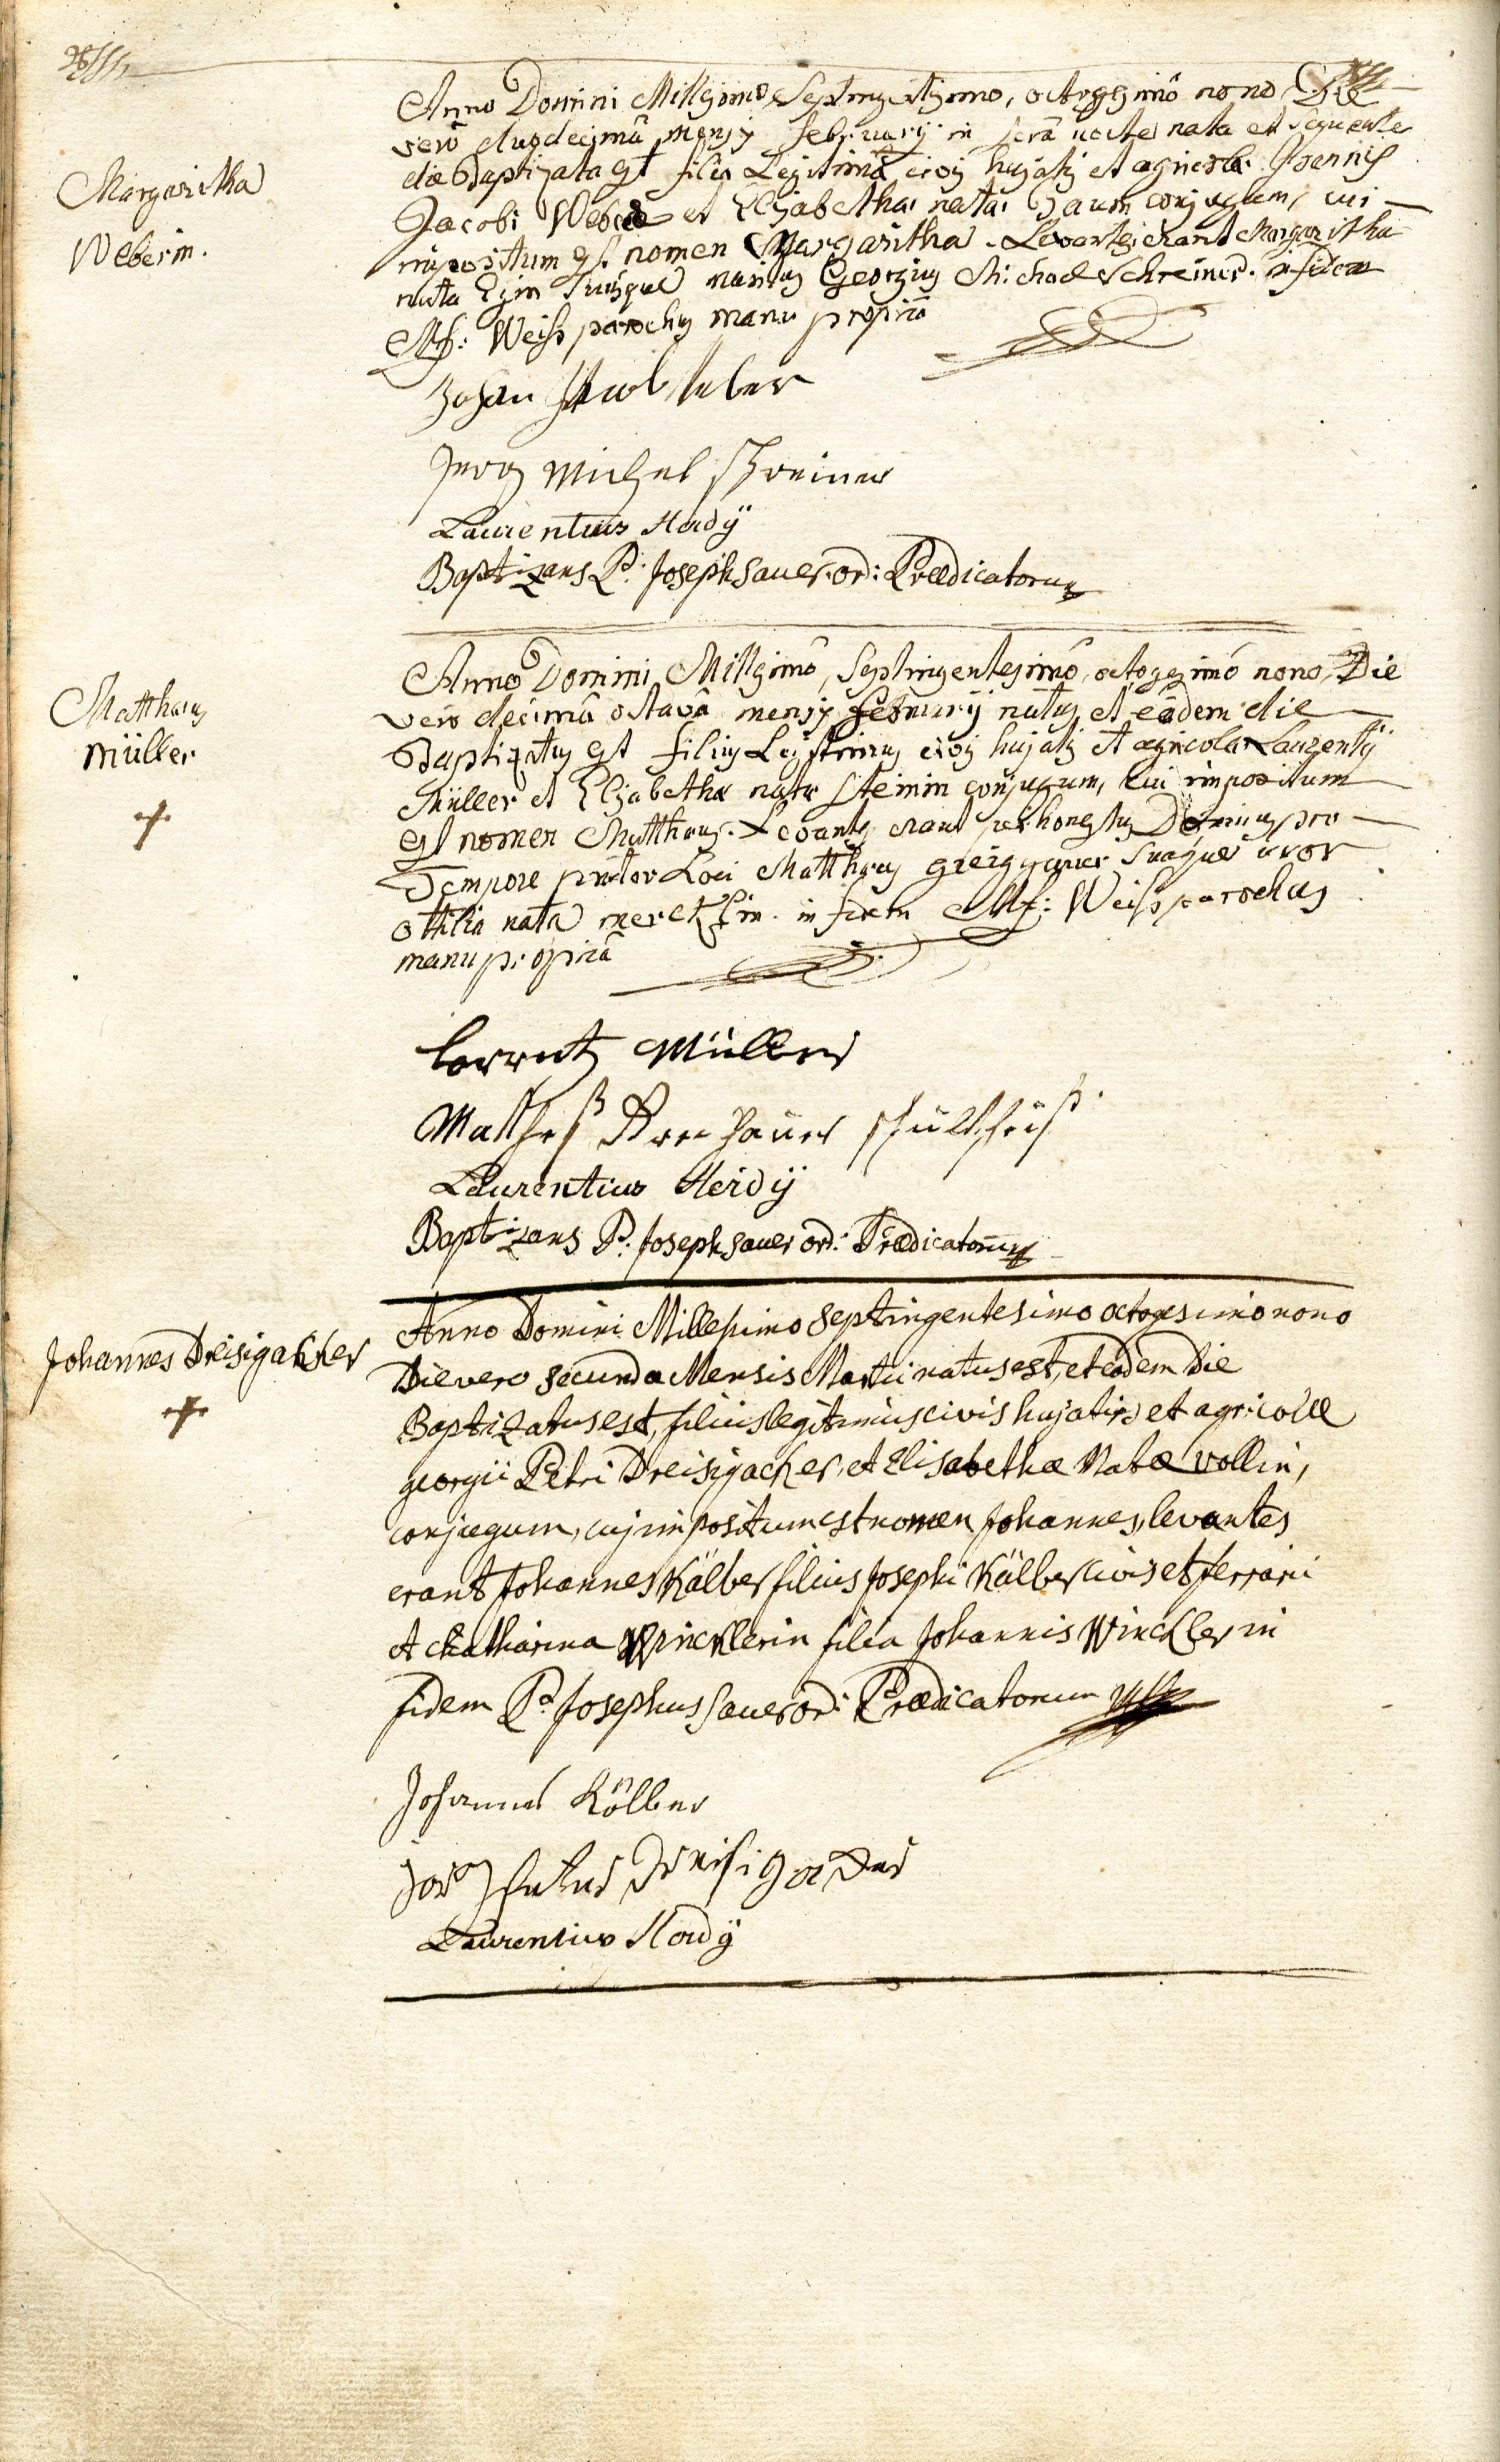 Margaritha
Weberin.
Anno Domini Millesimo Septingentesimo, octogesimo nono, Die
vero duodecimâ mensis februarij in serâ nocte nata et sequente
die Baptizata est filia Legitima civis hujatis et agricolæ Joannis
Jacobi Weber et Elisabethæ natæ conjugum, cui
impositum est nomen Margaritha. Levantes erant Margaritha
nata suusque maritus Georgius Michael Schreiner. in fidem
Mf: Weiß parochus manu propriâ
Johan Jacob Weber
Jerg Michel Schreiner
Laurentius Hordÿ
Baptizans P: Joseph Sauer ord: Prædicatorum
Matthæus
Müller
Anno Domini Millesimô, Septingentesimô, octogesimô nono, Die
vero decimâ octavâ mensis februarij natus et eâdem die
Baptizatus est filius Legitimus civis hujatis et agricolæ Laurentij
Müller et Elisabethæ natæ Steinin conjugum, cui impositum
est nomen Matthæus. Levantes erant perhonestus Dominus pro
Tempore prætor Loci Matthæus suaque uxor
ottilia nata in fidem Mf: Weiß parochus
manu propriâ
Lorentz Müller
Matheß schultheiß
Laurentius Heidÿ
Baptizans P: Joseph Sauer ord: Prædicatorum
Johannes Dreisigacker
Anno Domini Millesimo Septingentesimo octogesimo nono
Die vero secunda Mensis Martii natus est, et eodem Die
Baptizatus est, filius legitimus civis hujatis et agricolæ
georgii Petri Dreisigacker, et Elisabethæ Natæ Vollin,
conjugum, cuj impositum est nomen Johannes, levantes
erant Johannes Kälber filius Josephi Kälber civis et ferrarii
et Catharina Wincklerin filia Johannis Winckler in
fidem P: Josephus Sauer ord: Prædicatorum
Johannes Kölber
Jorg Peter Dreisigacker
Laurentius Hordÿ